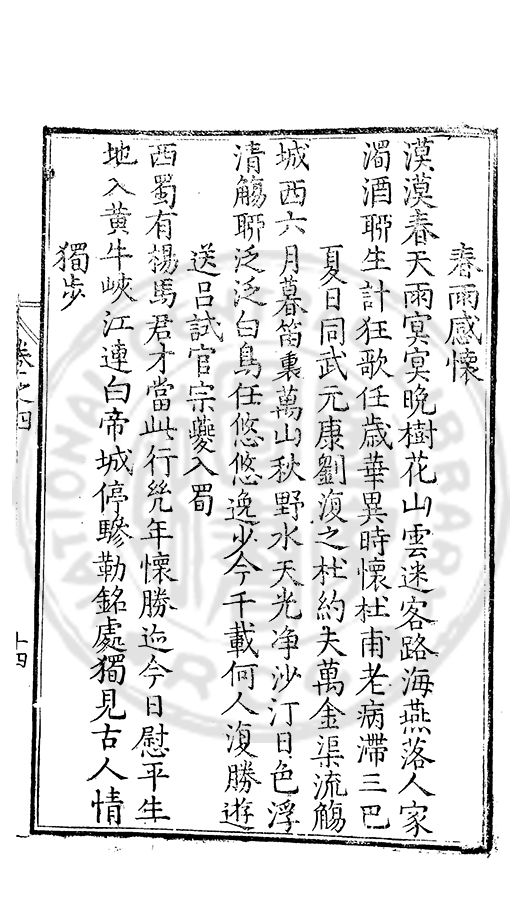 春雨感懷
漠漠春天雨冥冥晚樹花山雲迷客路海燕落人家
濁酒聊生計狂歌任歲華異時懷杜甫老病滯三巴
夏日同武元康劉復之杜約夫萬金渠流觴
城西六月暮笛裏萬山秋野水天光净沙汀日色浮
清觴聊泛泛白鳥任悠悠逸少今千載何人復勝遊
送吕試官宗夔入蜀
西蜀有楊馬君才當此行幾年懷勝迹今日慰平生
地入黃牛峽江連白帝城停驂勒銘處獨見古人情
獨步
卷之四
十四